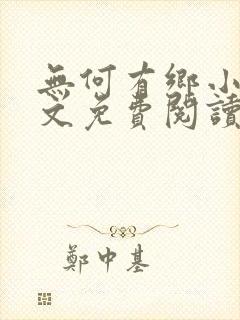 無何有鄉小
文免費閱讀
鄭中基